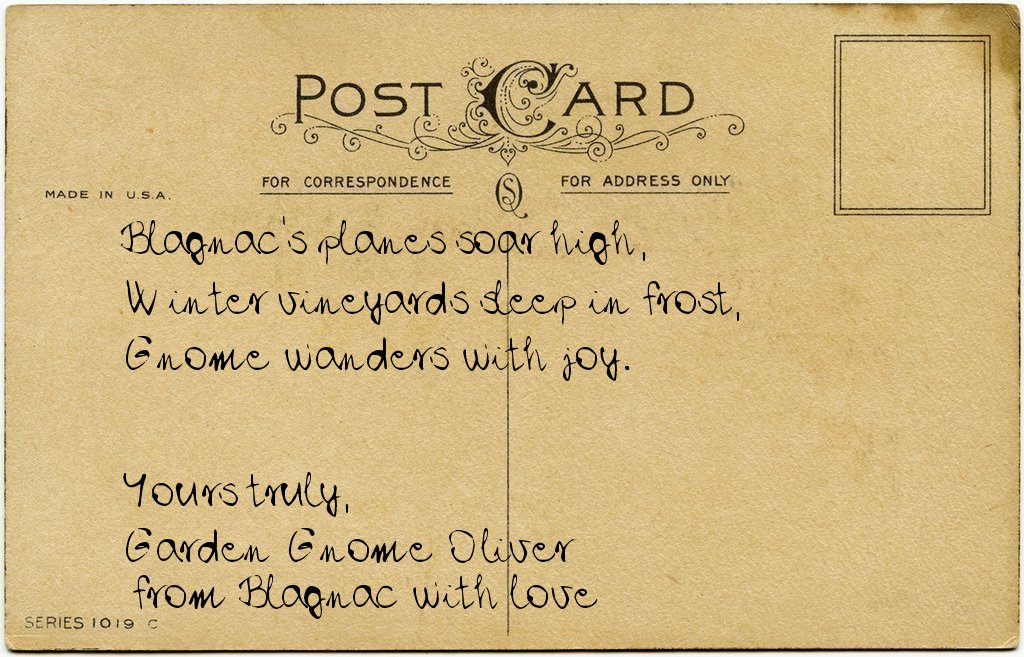 POST CARD
FOR CORRESPONDENCE
FOR ADDRESS ONLY
MADE IN U.S.A.
Blagnac's planes soar high,
Winter vineyards sleep in frost,
Gnome wanders with joy.
Yours truly,
Garden Gnome Oliver
from Blagnac with love
SERIES 1019 C